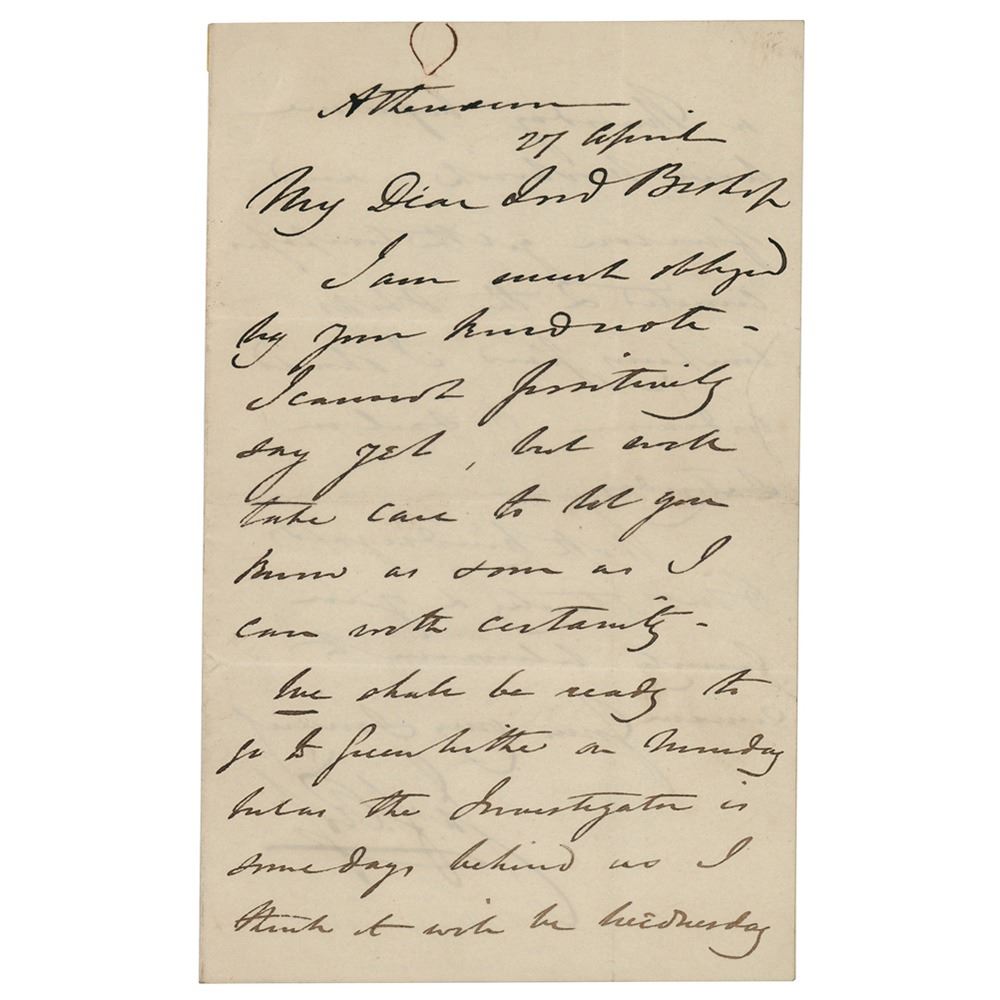 Athenaeum
27 April
My Dear Lord Bishop
I am much obliged
by your kind note -
I cannot positively
say yet, but will
take care to let you
know as soon as I
can with certainty -
We shall be ready to
go to Greenhithe on Monday
but as the Investigator is
some days behind us I
think it will be Wednesday